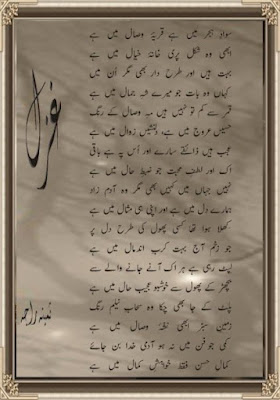 غزل
سواد ہجر میں ہے قریۂ وصال میں ہے
ابھی وہ شکل پری خانۂ خیال میں ہے
بہت ہیں اور طرح دار بھی مگر اُن میں
کہاں وہ بات جو میرے شہ جمال میں ہے
قمر سے کم تو نہیں ہیں مہ وصال کے رنگ
حسیں عروج میں ہے، دلنشیں زوال میں ہے
عجب ہیں ذائقے سارے اور اُس پہ ہے باقی
اک اور لطف محبت جو ضبط حال میں ہے
نہیں جہاں میں کہیں بھی مگر وہ آدم زاد
ہمارے دل میں ہے اور اپنی ہی مثال میں ہے
کھلا ہوا تھا کسی پھول کی طرح دل پر
جو زخم آج بہت کرب اندمال میں ہے
لپٹ رہی ہے ہر اک آنے جانے والے سے
بچھڑ کے پھول سے خوشبو عجیب حال میں ہے
پلٹ کے جا بھی چکا وہ سحاب نیلم رنگ
زمین سبز ابھی نشۂ وصال میں ہے
کمی جو فن میں نہ ہو آدمی خدا بن جائے
کمال حسن فقط خواہش کمال میں ہے
ثمینہ راجہ